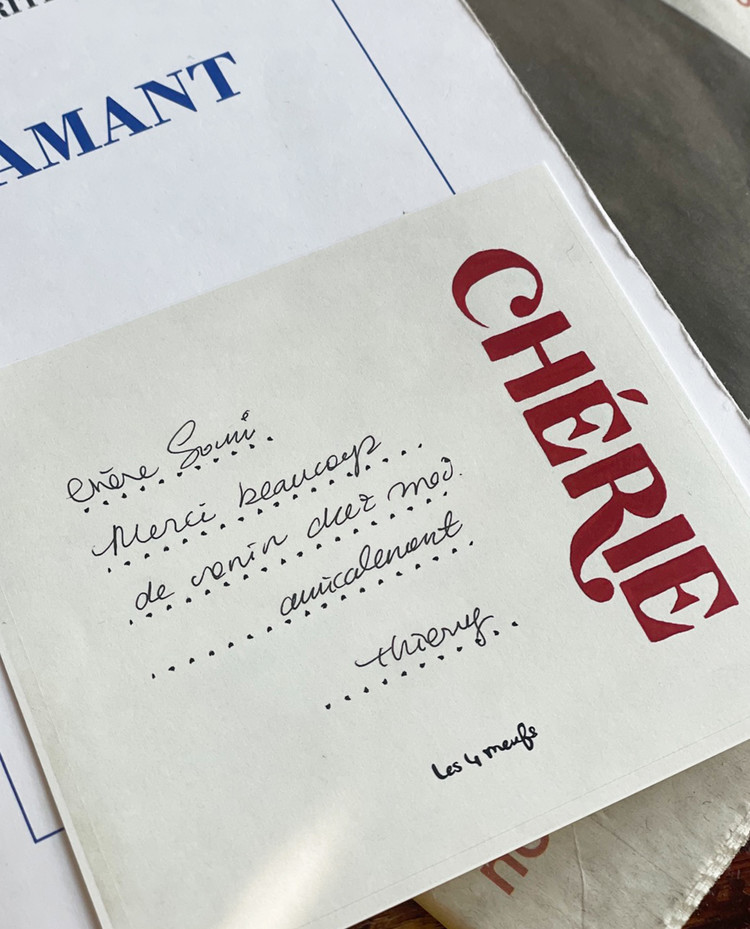 AMANT
CHÉRIE
Chère Somi
Merci beaucoup
de venir chez moi.
amicalement
thierry
Les 4 meufs